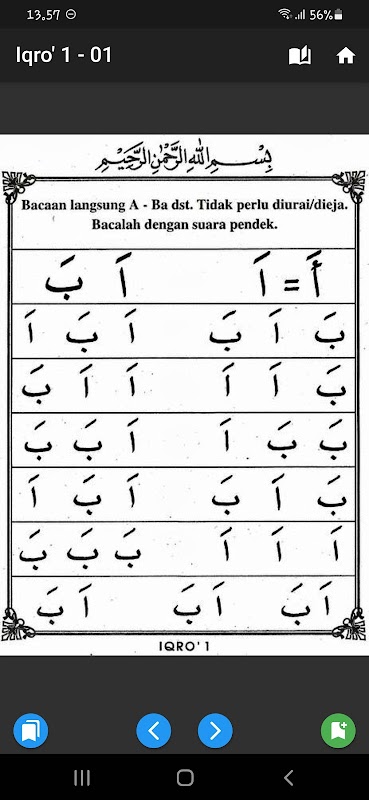 13.57 56%
Iqro' 1 - 01
بِسْمِ اللهِ الرَّحْمٰنِ الرَّحِيْمِ
Bacaan langsung A - Ba dst. Tidak perlu diurai/dieja.
Bacalah dengan suara pendek.
أَ = اَ اَ بَ
بَ اَ بَ اَ بَ اَ
بَ اَ اَ اَ اَ بَ
بَ بَ اَ اَ بَ بَ
بَ اَ بَ اَ بَ اَ
اَ اَ اَ بَ بَ بَ
اَ بَ اَ بَ اَ بَ
IQRO' 1